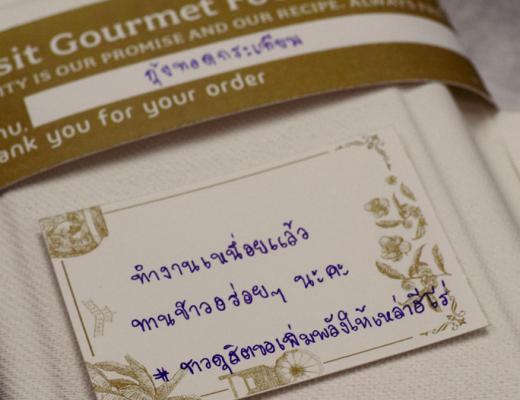 sit Gourmet Fo
ITY IS OUR PROMISE AND OUR RECIPE. ALWAYS F
กุ้งทอดกระเทียม
nu.
ank you for your order
ทำงานเหนื่อยแล้ว
ทานข้าวอร่อยๆ นะคะ
# ชาวดุสิตขอเพิ่มพลังให้เหล่าฮีโร่